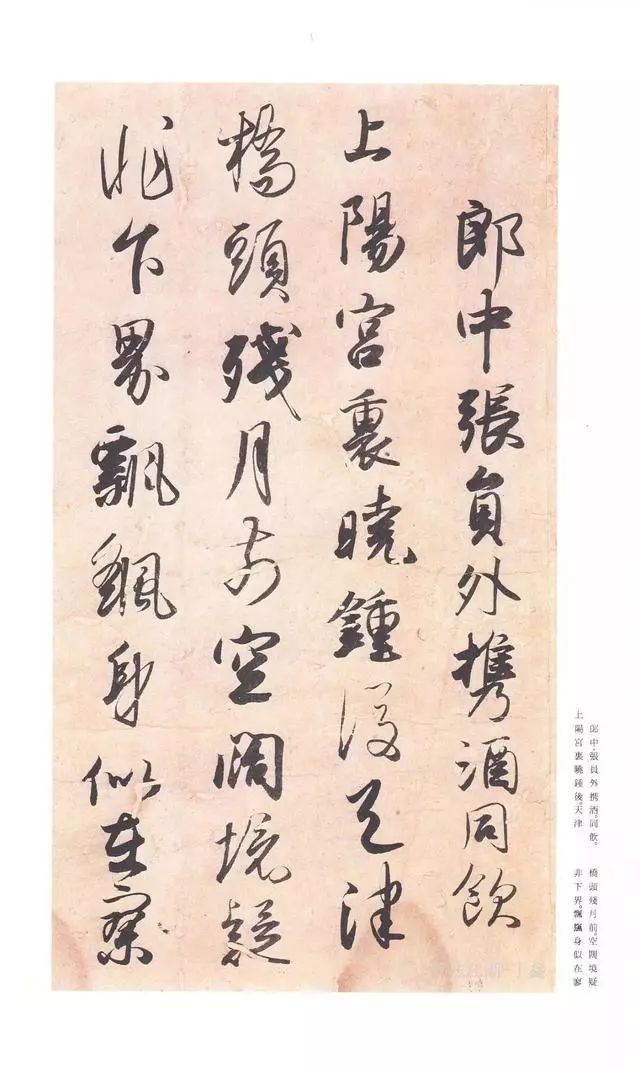 郎中張員外携酒同飲
上陽宮裏曉鍾後天津
橋頭殘月前空闊境疑
非下界飄飄身似在寥
郎中、張員外携酒。同飲。
上陽宮裏曉鍾後。天津
橋頭殘月前。空闊境疑
非下界。飄飄身似在寥